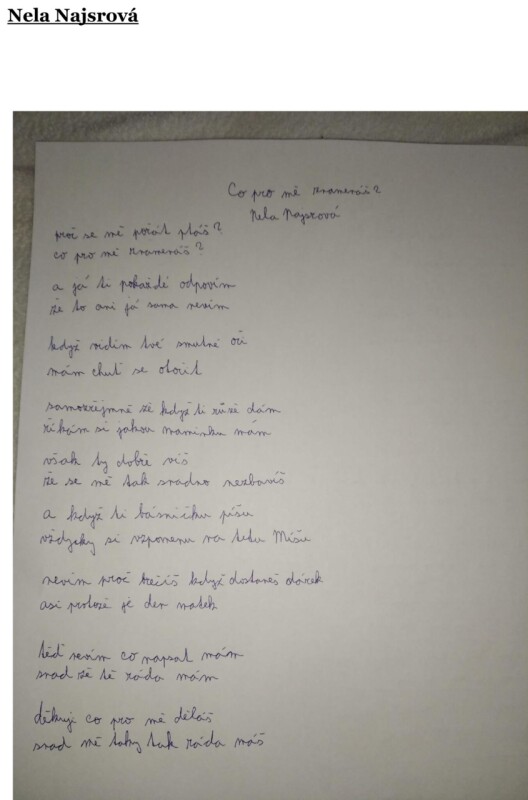 Nela Najsrová
Co pro mě znamenáš?
Nela Najsrová
proč se mě pořát ptáš?
co pro mě znamenáš?
a já ti pokaždé odpovím
že to ani já sama nevím
když vidím tvé smutné oči
mám chuť se otočit
samozřejmně že když ti růže dám
říkám si jakou maminku mám
však ty dobře víš
že se mě tak snadno nezbavíš
a když ti básničku píšu
vždycky si vzpomenu na tetu Míšu
nevím proč brečíš když dostaneš dárek
asi protože je den matek
těď nevím co napsat mám
snad že tě ráda mám
děkuji co pro mě děláš
snad mě taky tak ráda máš